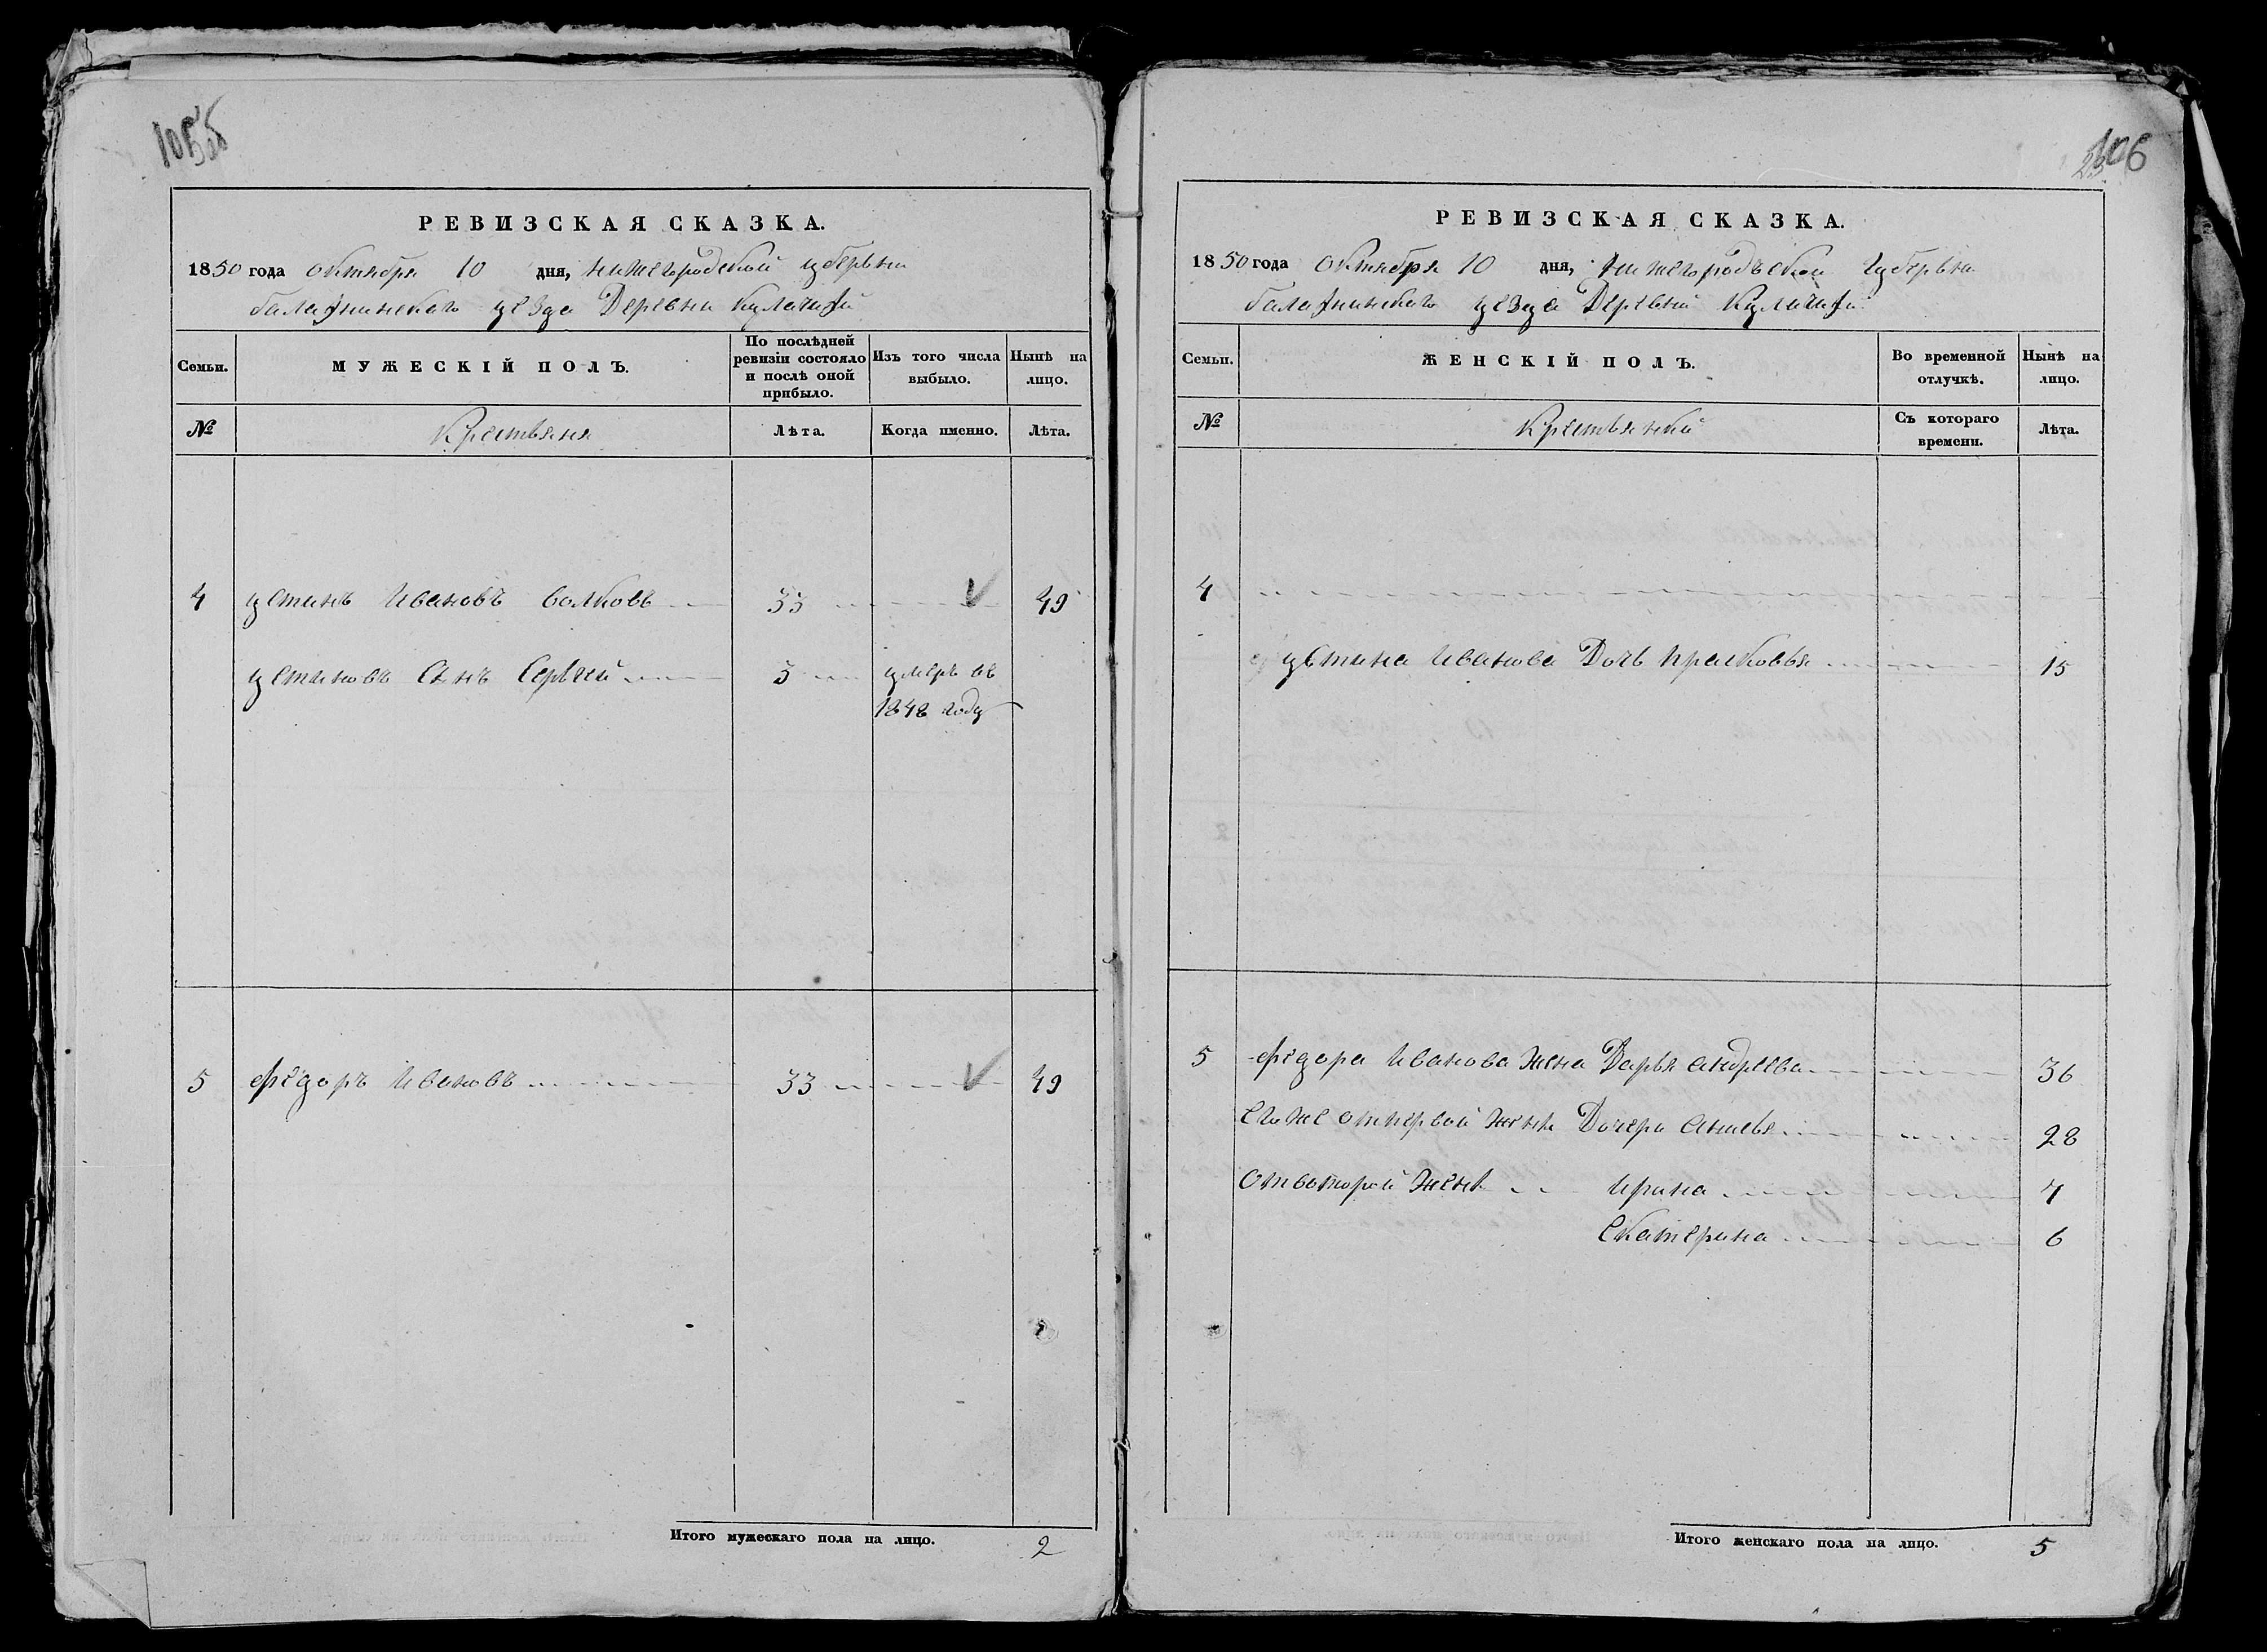 105об
РЕВИЗСКАЯ СКАЗКА.
1850 года октября 10 дня, нижегородской губернии
балахнинского уезда Деревни Кулачихи
Семьи.
МУЖЕСКІЙ ПОЛЪ.
По послѣдней ревизіи состояло и послѣ оной прибыло.
Изъ того числа выбыло.
Нынѣ на лицо.
№
Крестьяня
Лѣта.
Когда именно.
Лѣта.
4 устинъ Ивановъ волковъ 33 49
устиновъ сынъ Сергѣй 3 умеръ въ
1848 году
5 фёдоръ Ивановъ 33 49
Итого мужескаго пола на лицо. 2
106
РЕВИЗСКАЯ СКАЗКА.
1850 года октября 10 дня, нижегородъской губерьни
балахнинскаго уезда Деревни Кулачихи
Семьи.
ЖЕНСКІЙ ПОЛЪ.
Во временной отлучкѣ.
Нынѣ на лицо.
№
Крестьянки
Съ котораго времени.
Лѣта.
4
устина Иванова Дочь прасковья 15
5 фёдора Иванова жена Дарья андреева 36
его же отпервой жены Дочери анисья 28
отвоторой жены ирина 7
екатерина 6
Итого женскаго пола на лицо. 5